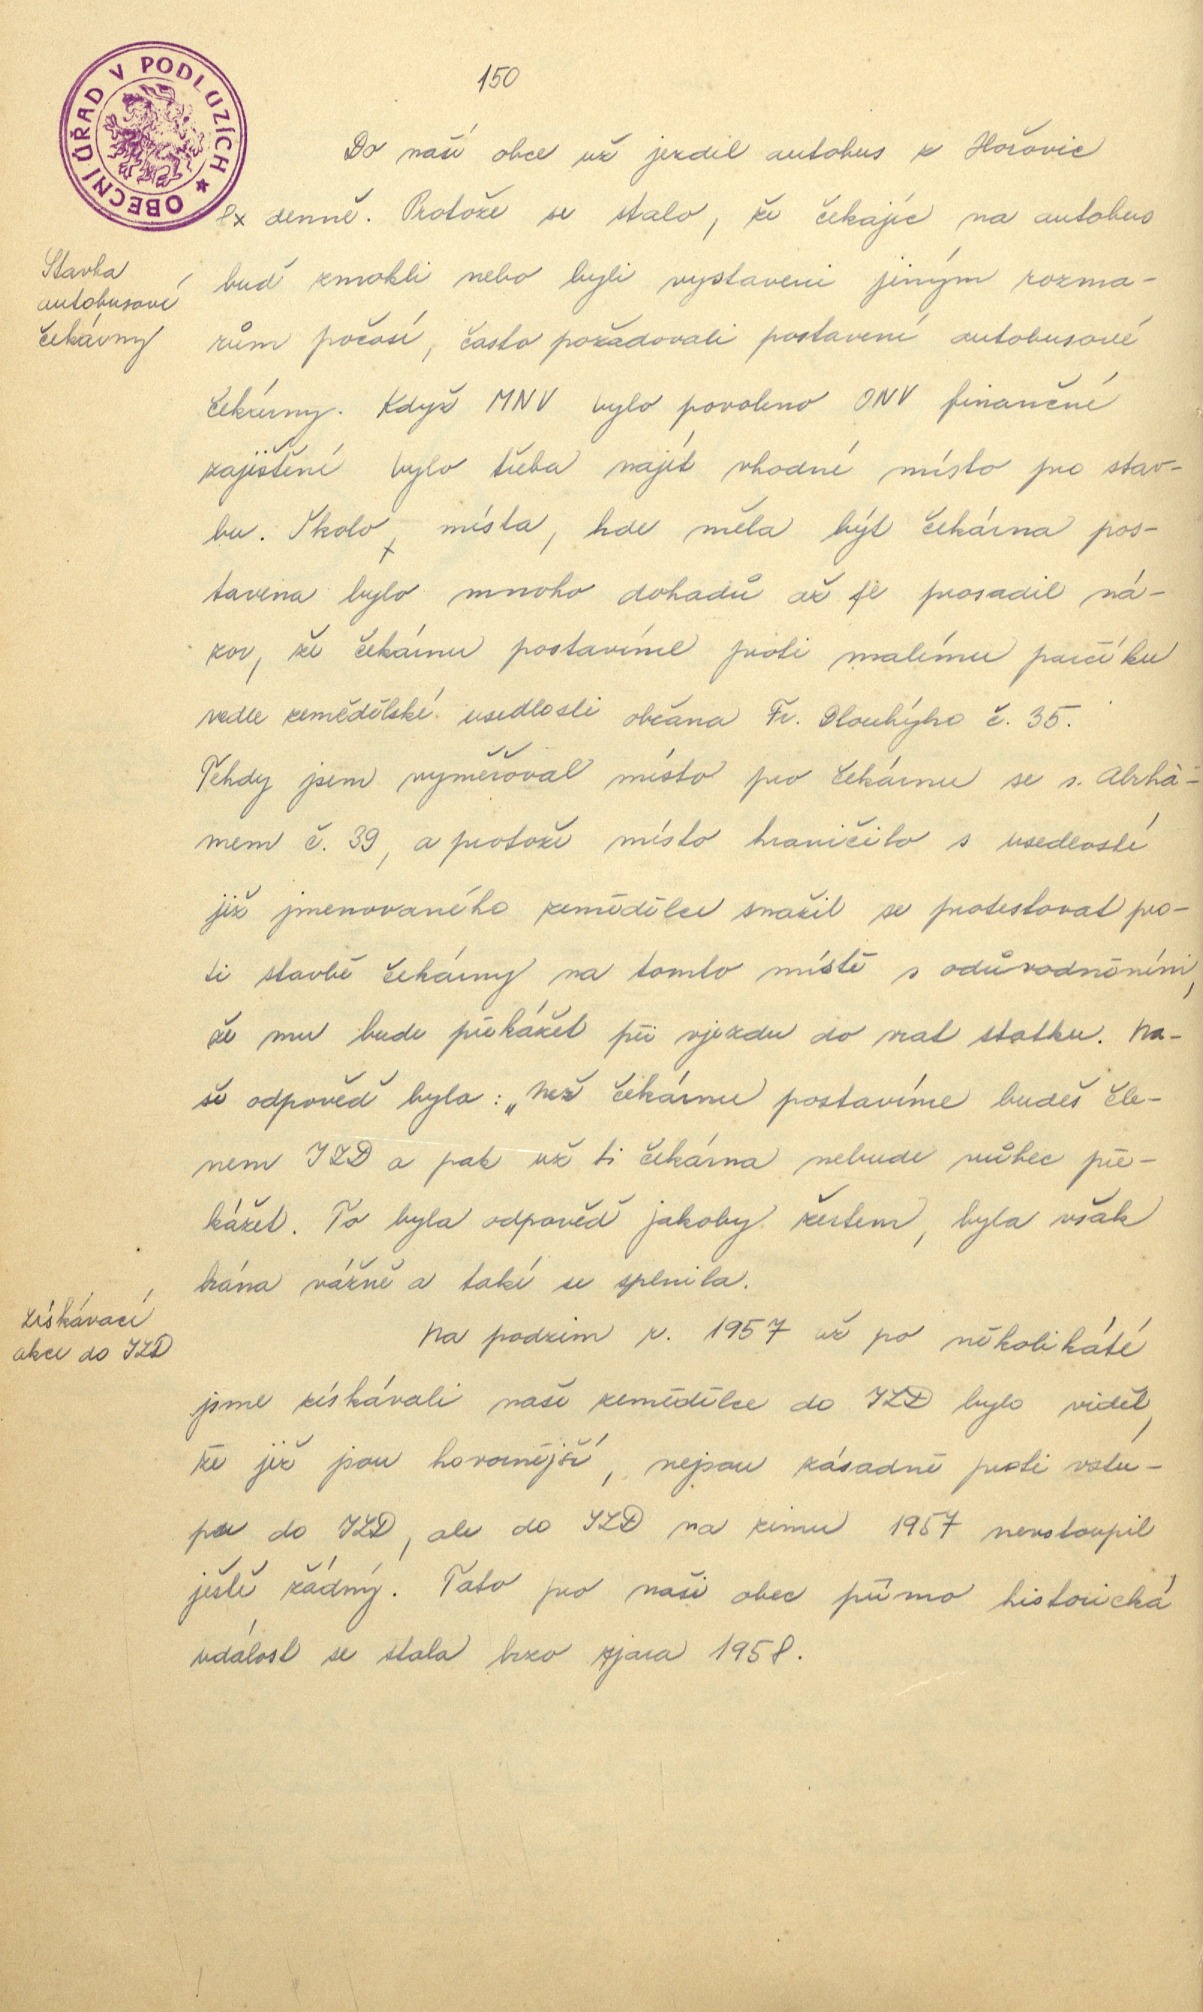 150
OBECNÍ ÚŘAD V PODLUZÍCH
Do naší obce už jezdil autobus z Hořovic
8x denně. Protože se stalo, že čekajíc na autobus
Stavba
autobusové
čekárny
buď zmokli nebo byli vystaveni jiným rozma-
rům počasí, často požadovali postavení autobusové
čekárny. Když MNV bylo povoleno ONV finanční
zajištění bylo třeba najít vhodné místo pro stav-
bu. Okolo místa, kde měla být čekárna pos-
tavena bylo mnoho dohadů až se prosadil ná-
zor, že čekárnu postavíme proti malému parčíku
vedle zemědělské usedlosti občana Fr. Dlouhýho č. 35.
Tehdy jsem vyměřoval místo pro čekárnu se s. Abrhá-
mem č. 39, a protože místo hraničilo s usedlostí
již jmenovaného zemědělce snažil se protestovat pro-
ti stavbě čekárny na tomto místě s odůvodněním,
že mu bude překážet při vjezdu do vrat statku. Na-
še odpověď byla: „Než čekárnu postavíme budeš čle-
nem JZD a pak už ti čekárna nebude vůbec pře-
kážet. To byla odpověď jakoby žertem, byla však
brána vážně a také se splnila.
Získávací
akce do JZD
Na podzim r. 1957 už po několikáté
jsme získávali naše zemědělce do JZD bylo vidět,
že již jsou hovornější, nejsou zásadně proti vstu-
pu do JZD, ale do JZD na zimu 1957 nevstoupil
ještě žádný. Tato pro naši obec přímo historická
událost se stala brzo zjara 1958.